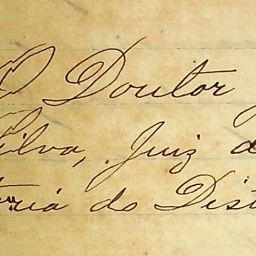 O Doutor
Silva, Juiz d
ria do Dist